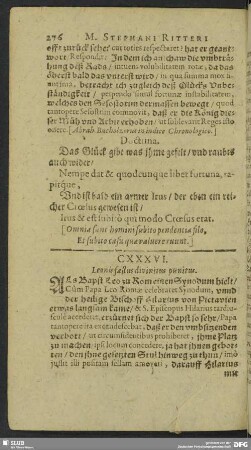 276 M. STEPHANI RITTERI
offt zurück sehe? cur toties respectaret? hat er geant-
wort/ Respondit: In dem ich an schau die umbträi-
hung deß Rads / intuens volubilitatem rotæ, da das
öberst bald das underst wird / in qua summa mox
betracht ich zugleich deß Glücks Unbe-
ständigkeit / perpendo simul fortunæ instabilitatem,
welches den Sesostrim dermassen bewegt / quod
tantopere Sesostrim commovit, daß er die König die-
ser Müh und Arbeit erhoben / ut sublevaret Reges
labore. [Abrah. Bucholzerus in indice Chronologico.]
Doctrina.
Das Glück gibt was ihme gefelt / und raubts
auch wider /
Nempe dat & quodcunque libet fortuna, ra-
pitque,
Und ist bald ein armer Irus / der eben ein rei-
cher Crœsus gewesen ist /
Irus & est subitò qui modo Crœsus erat.
[Omnia sunt hominum subito pendentia filo,
Et subito casu quæ valuere ruunt.]
CXXXVI.
Leonis fastus divinitus punitus.
ALs Bapst Leo zu Rom einen Synodum hielt /
Cùm Papa Leo Romæ celebraret Synodum, unnd
der heilige Bischoff Hilarius von Pictavien
etwas langsam kame / & S. Episcopus Hilarius tardiu-
sculè accederet, erzürnet sich der Bapst so sehr / Papa
tantopere ita excandescebat, daß er den umbsitzenden
verbott / ut circumsedentibus prohiberet, ihme Platz
zu machen / ipsi locum concedere, ja hat ihnen gebot-
ten / den ihne gesetzten Stul hinweg zu thun / imò
darauff Hilarius